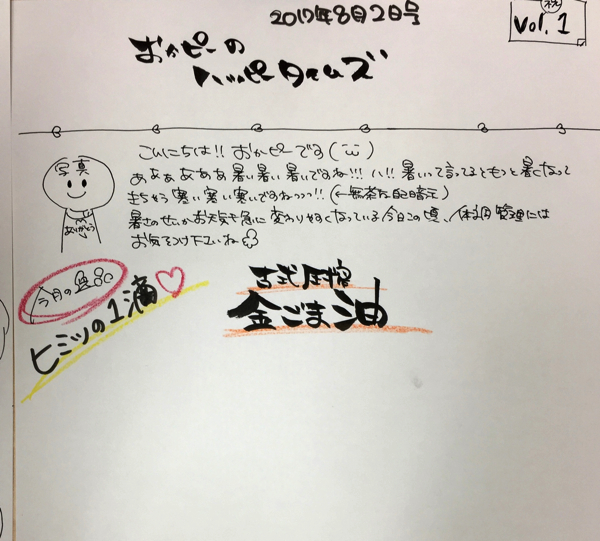 2017年8月2日号
Vol. 1
おかピーの
ハッピータイムズ
写真
ありがとう
こんにちは!! おかピーです(¨̮)
あぁぁぁぁぁ暑い暑い暑いですね!!! ハ!! 暑いって言ってるともっと暑くなって
まちゃう 寒い寒い寒いですねっっっ!! (←無茶な自己暗示)
暑さのせいかお天気も急に変わりやすくなっている今日この頃、体調管理には
お気をつけ下さいね
今月の
ヒミツの1滴♡
古式圧搾
金ごま油